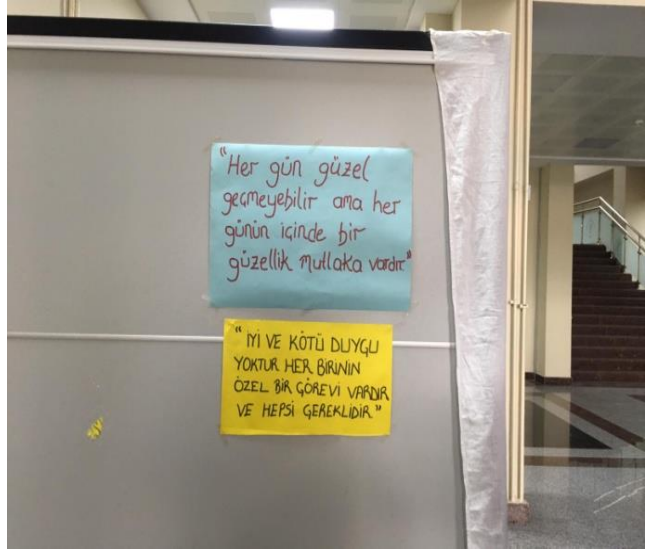 "Her gün güzel
geçmeyebilir ama her
günün içinde bir
güzellik mutlaka vardır."
"İYİ VE KÖTÜ DUYGU
YOKTUR HER BİRİNİN
ÖZEL BİR GÖREVİ VARDIR
VE HEPSİ GEREKLİDİR."